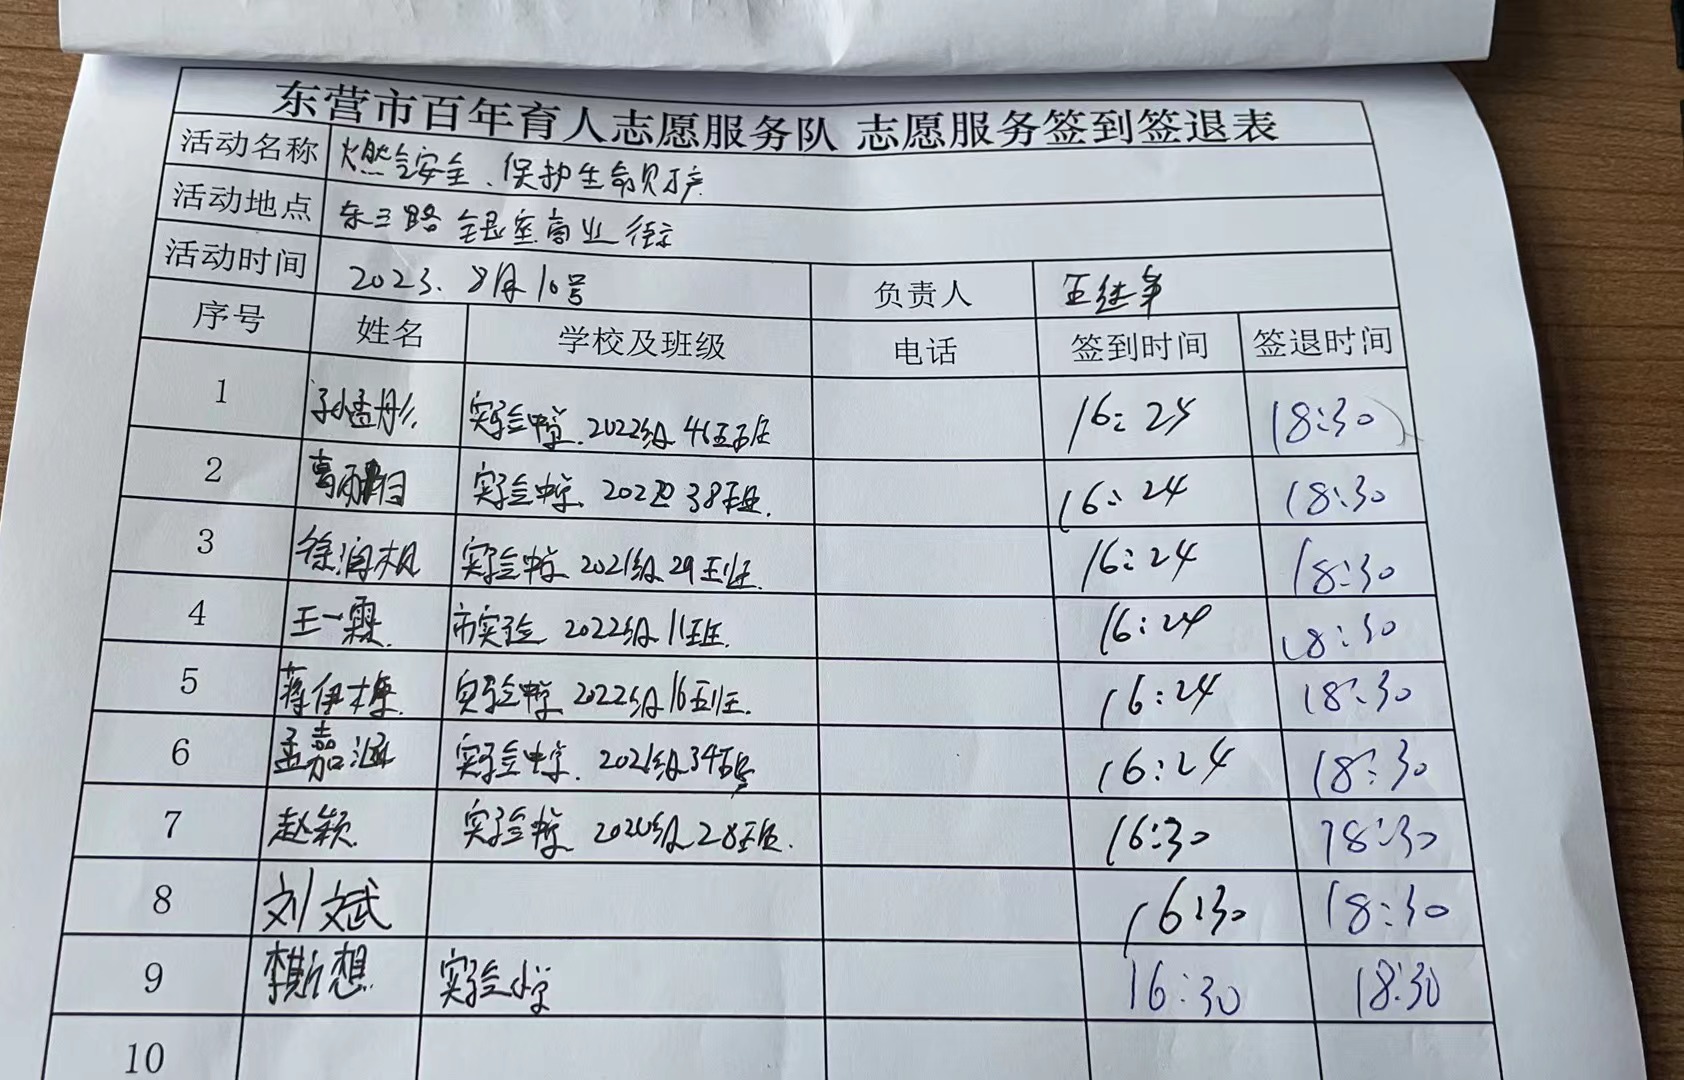 东营市百年育人志愿服务队 志愿服务签到签退表
活动名称 燃气安全、保护生命财产
活动地点 东三路 银座商业街
活动时间 2023. 8月10号 负责人 王继军
序号 姓名 学校及班级 电话 签到时间 签退时间
1 孙孟彤 实验中学. 2022级 46班 16:25 18:30
2 实验中学 2022 38班. 16:24 18:30
3 徐润枫 实验中学 2021级 29班. 16:24 18:30
4 王一霖. 市实验 2022级 11班. 16:24 18:30
5 蒋伊 实验中学 2022级 16班. 16:24 18:30
6 孟嘉涵 实验中学. 2021级 34班 16:24 18:30
7 赵颖 实验中学 2020级 28班. 16:30 18:30
8 刘文斌 16:30 18:30
9 李斯想 实验小学 16:30 18:30
10